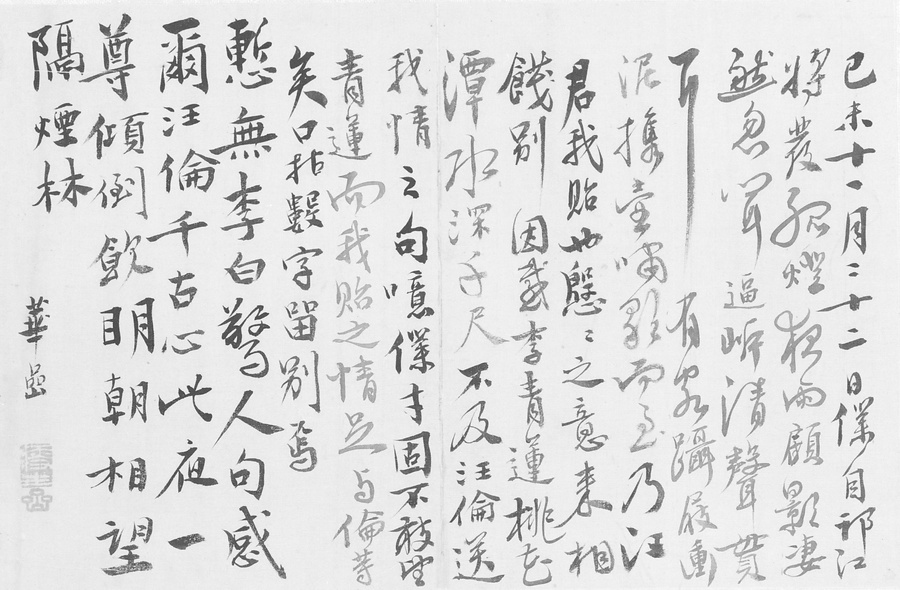 己未十一月二十二日僕自邗江
將發孤燈夜雨顧影凄
然忽聞逼岍清聲貫
耳有客躡屐衝
泥攜壺嘯歌而至乃汪
君我貽也慇〻之意来相
餞別因感李青蓮桃花
潭水深千尺不及汪倫送
我情之句噫僕才固不敢望
青蓮而我貽之情足与倫等
矣口拈數字留別焉
慙無李白驚人句感
爾汪倫千古心此夜一
尊傾倒飲明朝相望
隔煙林
華嵒